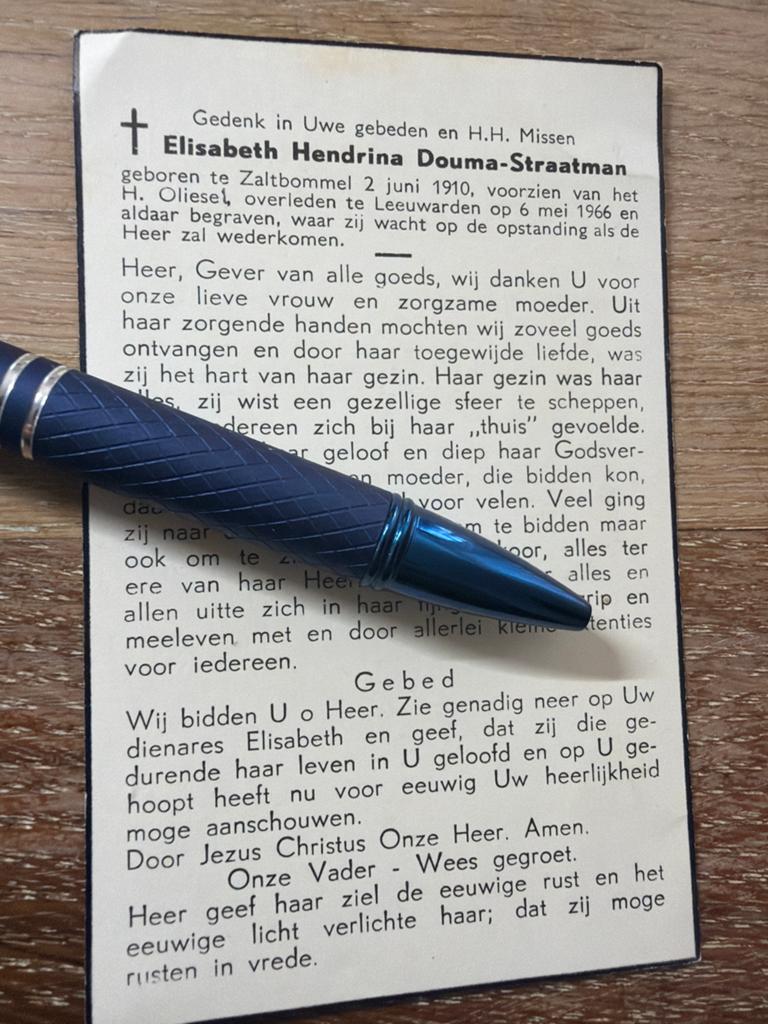 Gedenk in Uwe gebeden en H.H. Missen
Elisabeth Hendrina Douma-Straatman
geboren te Zaltbommel 2 juni 1910, voorzien van het
H. Oliesel, overleden te Leeuwarden op 6 mei 1966 en
aldaar begraven, waar zij wacht op de opstanding als de
Heer zal wederkomen.
Heer, Gever van alle goeds, wij danken U voor
onze lieve vrouw en zorgzame moeder. Uit
haar zorgende handen mochten wij zoveel goeds
ontvangen en door haar toegewijde liefde, was
zij het hart van haar gezin. Haar gezin was haar
alles, zij wist een gezellige sfeer te scheppen,
zich bij haar „thuis” gevoelde.
geloof en diep haar Godsver-
moeder, die bidden kon,
voor velen. Veel ging
zij naar te bidden maar
ook om te alles ter
ere van haar alles en
allen uitte zich in haar en
meeleven met en door allerlei
voor iedereen.
Gebed
Wij bidden U o Heer. Zie genadig neer op Uw
dienares Elisabeth en geef, dat zij die ge-
durende haar leven in U geloofd en op U ge-
hoopt heeft nu voor eeuwig Uw heerlijkheid
moge aanschouwen.
Door Jezus Christus Onze Heer. Amen.
Onze Vader - Wees gegroet.
Heer geef haar ziel de eeuwige rust en het
eeuwige licht verlichte haar; dat zij moge
rusten in vrede.